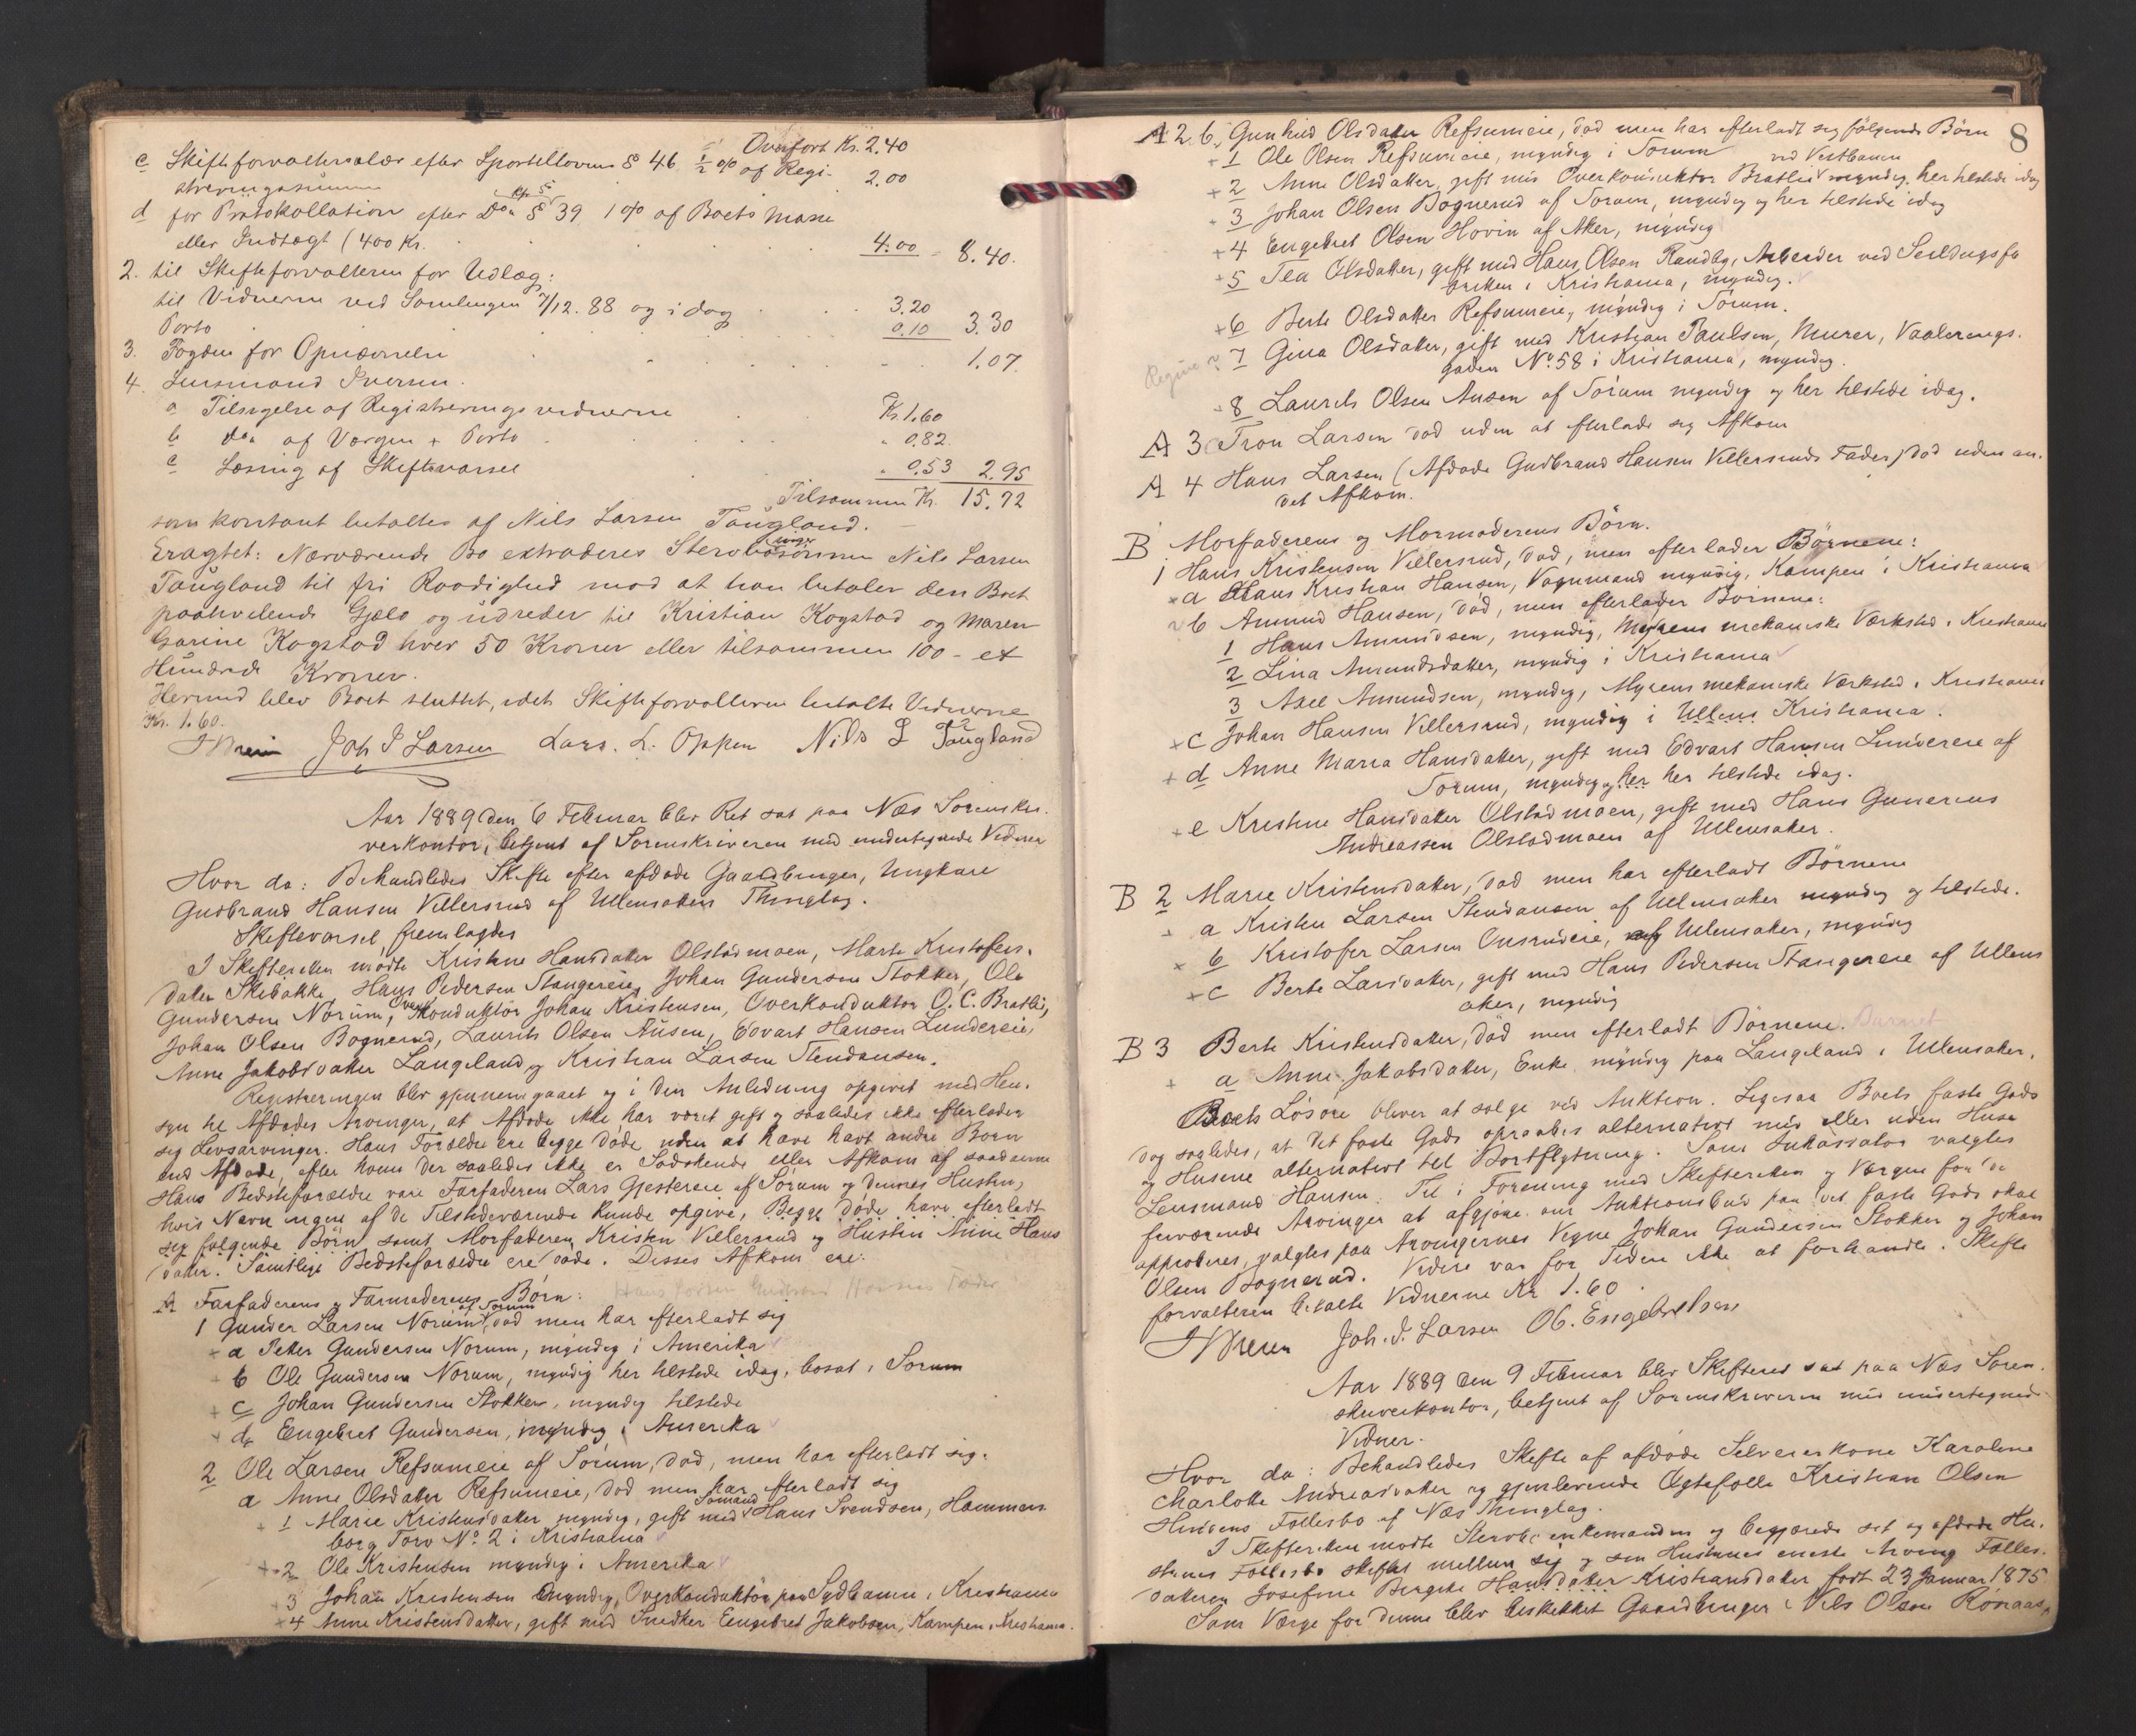 Overført Kr. 2.40
c Skifteforvaltersalær efter Sportelloven § 46 ½ % af Regi-
streringssummen 2.00
d for Protokollation efter Doa § 39 1 % af Boets Masse
eller Indtægt (400 Kr. 4.00 = 8.40.
2. til Skifteforvalteren for Udlæg:
til Vidnerne ved Samlingen 7/12.88 og i dag 3.20
Porto 0.10 3.30
3. Fogden for Opnævnelse 1.07.
4. Lensmand Iversen.
a Tilsigelse af Registreringsvidnerne Kr. 1.60
b doa af Værgen + Porto " 0.82.
c Læsning af Skiftevarsel " 0.53 2.95
Tilsammen Kr. 15.72
som kontant betaltes af Nils Larsen Taugland.
Eragtet: Nærværende Bo extraderes Nils Larsen
Taugland til fri Raadighed mod at han betaler den Boet
paahvilende Gjæld og udreder til Kristian Kogstad og Maren
Garine Kogstad hver 50 Kroner eller tilsammen 100 - et
Hundrede Kroner.
Hermed blev Boet sluttet, idet Skifteforvalteren betalte Vidnerne
Kr. 1.60.
Joh J Larsen Lars. L. Oppen Nils L Taugland
Aar 1889 den 6 Februar blev Ret sat paa Næs Sorenskri-
verkontor, betjent af Sorenskriveren med undertegnede Vidner
Hvor da: Behandledes Skifte efter afdøde Gaardbruger, Ungkarl
Gudbrand Hansen Villersrud af Ullensakers Thinglag.
Skiftevarsel fremlagdes
I Skifteretten mødte Kristine Hansdatter Olstadmoen, Marte Kristofers-
datter Skibakke, Hans Pedersen Stangereie, Johan Gundersen Stokker, Ole
Gundersen Norum, Overkonduktør Johan Kristensen, Overkonduktør O. C. Bratlie,
Johan Olsen Bognerud, Laurits Olsen Ausen, Edvart Hansen Lundereie,
Anne Jakobsdatter Langeland og Kristian Larsen Stendansen.
Registreringen blev gjennemgaaet og i den Anledning opgivet med Hen-
syn til Afdødes Arvinger, at Afdøde ikke har været gift og saaledes ikke efterlader
sig Livsarvinger. Hans Forældre ere begge døde, uden at have havt andre Børn
end Afdøde, efter hvem der saaledes ikke er Sødskende eller Afkom af saadanne
Hans Bedsteforældre vare Farfaderen Lars Gjestereie af Sørum og dennes Hustru,
hvis Navn ingen af de Tilstedeværende kunde opgive, Begge døde, have efterladt
sig følgende Børn samt Morfaderen Kristen Villersrud og Hustru Anne Hans
datter. Samtlige Bedsteforældre ere døde. Disses Afkom ere:
A Farfaderens og Farmoderens Børn: Hans Larsen Gudbrand Hansens Fader
1 Gunder Larsen Norum af Sørum, død men har efterladt sig
a Peter Gundersen Norum, myndig i Amerika
b Ole Gundersen Norum, myndig her tilstede idag, bosat i Sørum
c Johan Gundersen Stokker, myndig tilstede
d Engebret Gundersen, myndig i Amerika
2 Ole Larsen Refsumeie af Sørum, død, men har efterladt sig.
a Anne Olsdatter Refsumeie, død men har efterladt sig
1 Marie Kristensdatter myndig, gift med Sømand Hans Svendsen, Hammers-
borg Torv No. 2 i Kristiania
2 Ole Kristensen myndig i Amerika
3 Johan Kristensen myndig, Overkonduktør paa Sydbanen i Kristiania
4 Anne Kristensdatter, gift med Snedker Engebret Jakobsen, Kampen i Kristiania.
8
A 2. b. Gunhild Olsdatter Refsumeie, død men har efterladt sig følgende Børn
1 Ole Olsen Refsumeie, myndig i Sørum
2 Anne Olsdatter, gift med Overkonduktør Bratlie ved Vestbanen myndig, her tilstede idag
3 Johan Olsen Bognerud af Sørum, myndig og her tilstede idag
4 Engebret Olsen Hovin af Aker, myndig
5 Tea Olsdatter, gift med Hans Olsen Randby, Arbeider ved Seildugsfa
briken i Kristiania, myndig.
6 Berte Olsdatter Refsumeie, myndig i Sørum.
Regine? 7 Gina Olsdatter, gift med Kristian Paulsen, Murer, Vaalerengs-
gaden No. 58 i Kristiania, myndig.
8 Laurits Olsen Ausen af Sørum myndig og her tilstede idag.
A 3 Tron Larsen død uden at efterlade sig Afkom
A 4 Hans Larsen (Afdøde Gudbrand Hansen Villersruds Fader) død uden an-
det Afkom.
B Morfaderens og Mormoderens Børn.
1 Hans Kristensen Villersrud, død, men efterlader Børnene:
a Hans Kristian Hansen, Vognmand myndig, Kampen i Kristiania
b Amund Hansen, død, men efterlader Børnene:
1 Hans Amundsen, myndig, Myrens mekaniske Værksted i Kristiania
2 Lina Amundsdatter, myndig i Kristiania
3 Axel Amundsen, myndig, Myrens mekaniske Værksted i Kristiania
c Johan Hansen Villersrud, myndig i Ullens Kristiania.
d Anne Maria Hansdatter, gift med Edvart Hansen Lundereie af
Sørum, myndig og her her tilstede idag.
e Kristine Hansdatter Olstadmoen, gift med Hans Gunerius
Andreassen Olstadmoen af Ullensaker.
B 2 Marie Kristensdatter, død men har efterladt Børnene
a Kristen Larsen Stendansen af Ullensaker myndig og tilstede.
b Kristofer Larsen Onsrudeie, af Ullensaker, myndig
c Berte Larsdatter, gift med Hans Pedersen Stangereie af Ullens
aker, myndig
B 3 Berte Kristensdatter, død men efterladt Børnene. Barnet
a Anne Jakobsdatter, Enke, myndig paa Langeland i Ullensaker.
Boets Løsøre bliver at sælge ved Auktion. Ligesaa Boets faste Gods
dog saaledes, at det faste Gods opraabes alternativt med eller uden Huse
og Husene alternativt til Bortflytning. Som Inkassator valgtes
Lensmand Hansen. Til i Forening med Skifteretten og Værgen for de
fraværende Arvinger at afgjøre om Auktionsbud paa det faste Gods skal
approberes, valgtes paa Arvingernes Vegne Johan Gundersen Stokker og Johan
Olsen Bognerud. Videre var for Tiden ikke at forhandle. Skifte
forvalteren betalte Vidnerne Kr 1.60.
Joh. J. Larsen O6. Engebretsen
Aar 1889 den 9 Februar blev Skifteret sat paa Næs Soren-
skriverkontor, betjent af Sorenskriveren med undertegnede
Vidner.
Hvor da: Behandledes Skifte af afdøde Selveierkone Karoline
Charlotte Andreasdatter og gjenlevende Ægtefælle Kristian Olsen
Hengens Fællesbo af Næs Thinglag.
I Skifteretten mødte Sterboenkemanden og begjærede sit og afdøde Hu-
strues Fællesbo skiftet mellem sig og sin Hustrues eneste Arving Fælles-
datteren Josefine Bergitte Hansdatter Kristiansdatter født 23 Januar 1875
Som Værge for denne blev beskikket Gaardbruger Nils Olsen Rønaas,